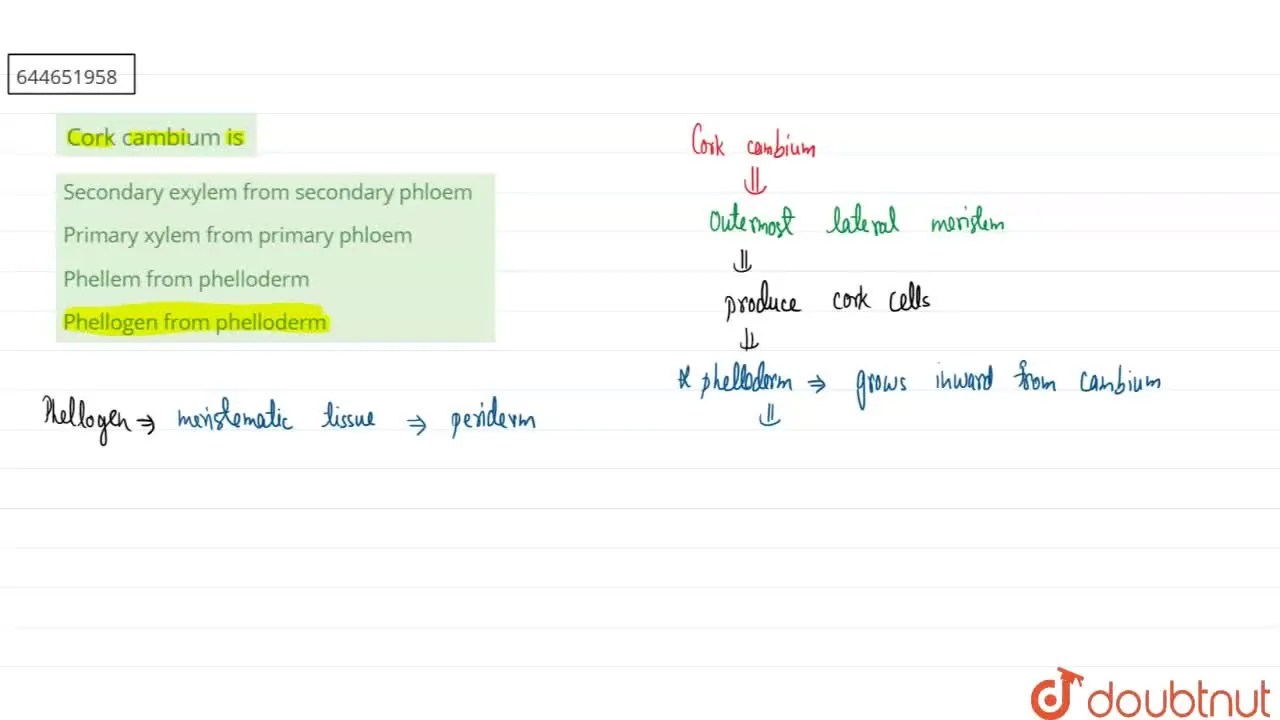 644651958
Cork cambium is
Secondary exylem from secondary phloem
Primary xylem from primary phloem
Phellem from phelloderm
Phellogen from phelloderm
Phellogen ⇒ meristematic tissue ⇒ periderm
Cork cambium
⇓
Outermost lateral meristem
⇓
produce cork cells
⇓
& phelloderm ⇒ grows inward from cambium
⇓
doubtnut